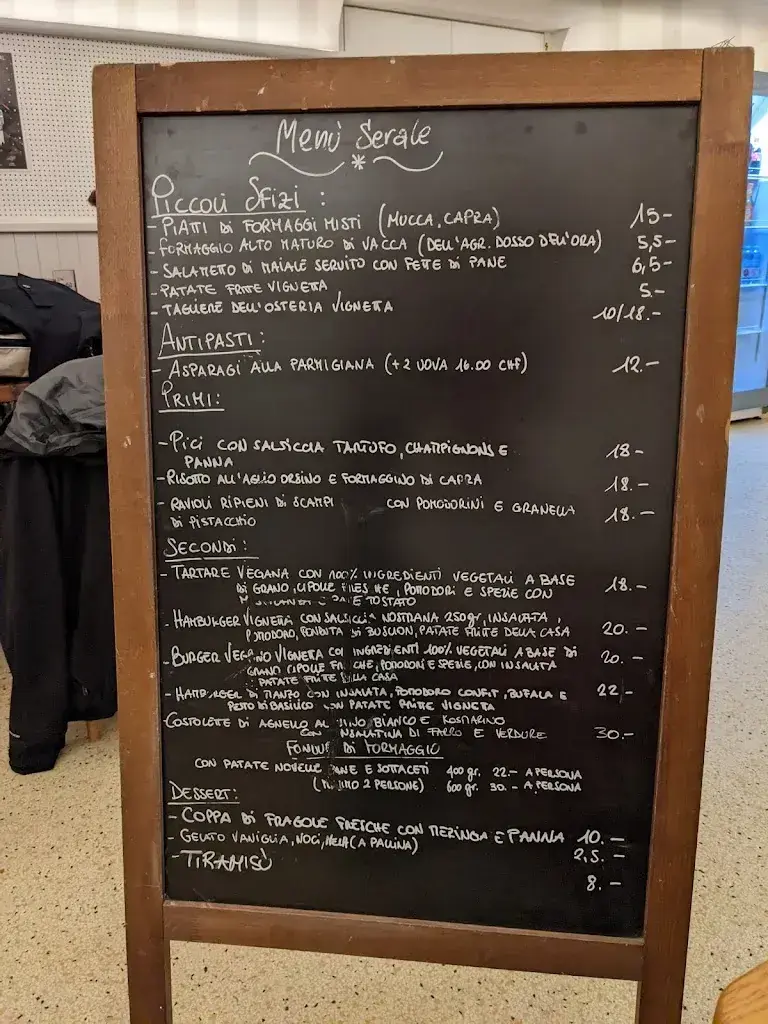 Menù Serale
*
PICCOLI SFIZI :
- PIATTI DI FORMAGGI MISTI (MUCCA, CAPRA) 15-
- FORMAGGIO ALTO MATURO DI VACCA (DELL'AGR. DOSSO DELL'ORA) 5,5-
- SALAMETTO DI MAIALE SERVITO CON FETTE DI PANE 6,5-
- PATATE FRITE VIGNETTA 5.-
- TAGLIERE DELL'OSTERIA VIGNETTA 10/18.-
ANTIPASTI :
- ASPARAGI ALLA PARMIGIANA (+2 UOVA 16.00 CHF) 12.-
PRIMI :
- PICI CON SALSICCIA TARTUFO, CHAMPIGNONS E 18-
PANNA
- RISOTTO ALL'AGLIO ORSINO E FORMAGGINO DI CAPRA 18.-
- RAVIOLI RIPIENI DI SCAMPI CON POMODORINI E GRANELLA 18.-
DI PISTACCHIO
SECONDI :
- TARTARE VEGANA CON 100% INGREDIENTI VEGETALI A BASE 18.-
DI GRANO, CIPOLLE FRESCHE, POMODORI E SPEZIE CON
PANE TOSTATO
- HAMBURGER VIGNETTA CON SALSICCIA NOSTRANA 250gr, INSALATA, 20.-
POMODORO, FONDUTA DI BUSCION, PATATE FRITTE DELLA CASA
- BURGER VEGANO VIGNETTA CON INGREDIENTI 100% VEGETALI A BASE DI 20.-
GRANO CIPOLLE FRESCHE, POMODORI E SPEZIE, CON INSALATA
E PATATE FRITTE DELLA CASA
- HAMBURGER DI MANZO CON INSALATA, POMODORO CONFIT, BUFALA E 22-
PESTO DI BASILICO CON PATATE FRITTE VIGNETTA
- COSTOLETTE DI AGNELLO AL VINO BIANCO E ROSMARINO
CON INSALATINA DI FARRO E VERDURE 30.-
FONDUE DI FORMAGGIO
CON PATATE NOVELLE PANE E SOTTACETI 400 gr. 22.- A PERSONA
(MINIMO 2 PERSONE) 600 gr. 30.- A PERSONA
DESSERT :
- COPPA DI FRAGOLE FRESCHE CON MERINGA E PANNA 10.-
- GELATO VANIGLIA, NOCI, MELA (A PALLINA) 2,5.-
- TIRAMISÙ 8.-